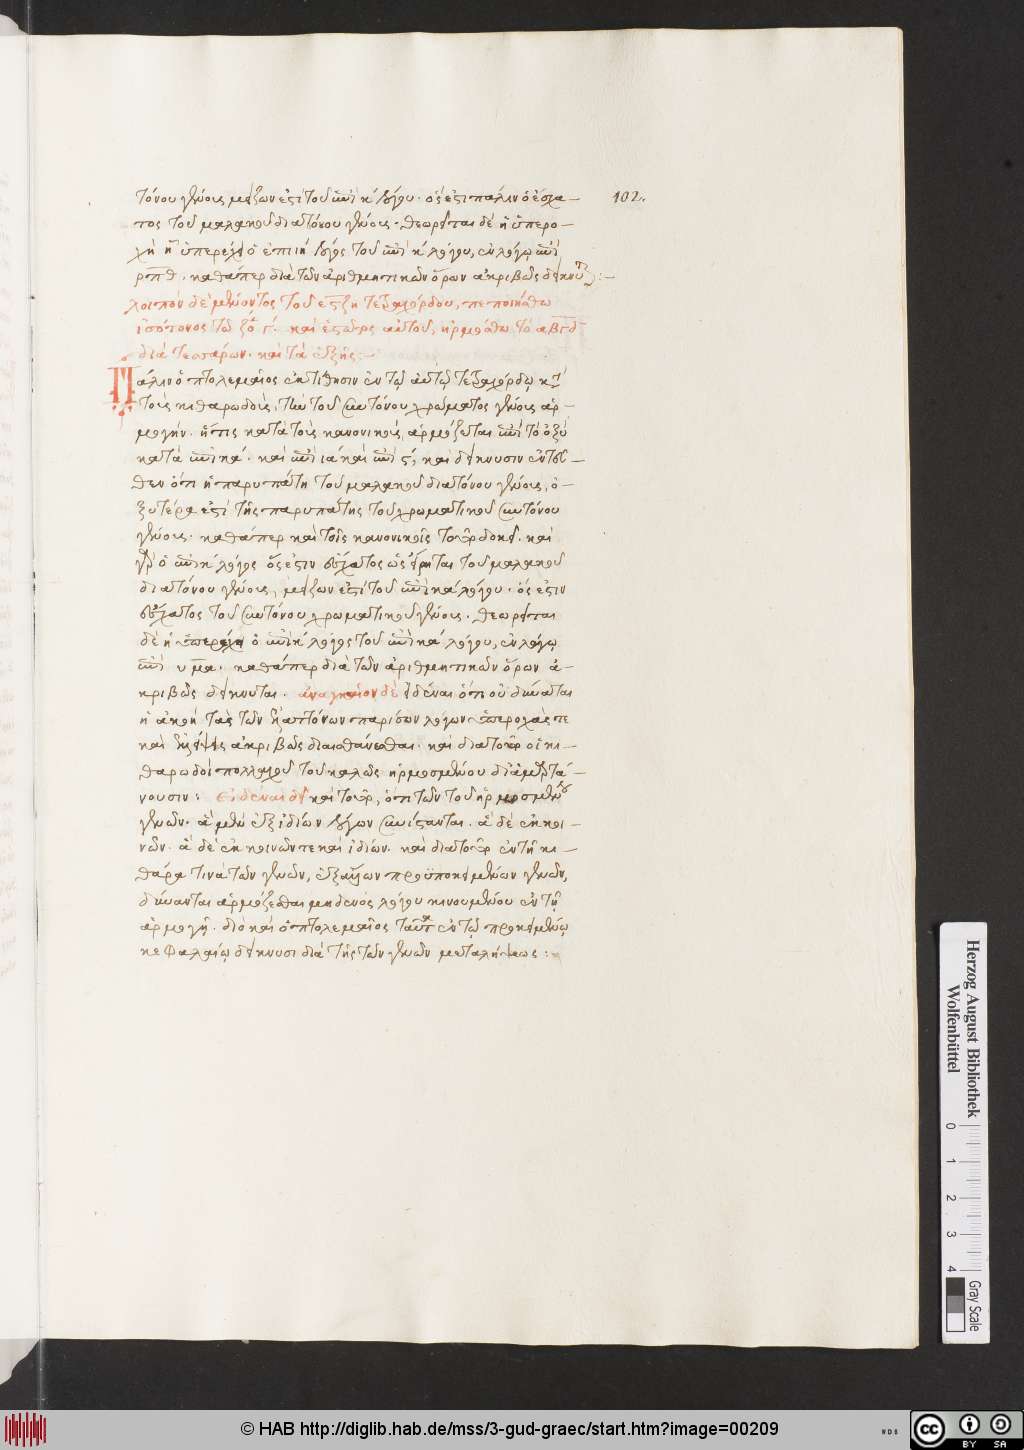 τόνου γένους μείζων ἐστὶ τοῦ ἐπὶ κ λόγου· ὅς ἐστι πάλιν ὁ ἔσχα— 102.
τος τοῦ μαλακοῦ διατόνου γένους· θεωρεῖται δὲ ἡ ὑπερο—
χὴ ᾗ ὑπερέχει ὁ ἐπὶ ιη λόγος τοῦ ἐπὶ κ λόγου, ἐν λόγῳ ἐπὶ
ρπθ, καθάπερ διὰ τῶν ἀριθμητικῶν ὅρων ἀκριβῶς δείκνυται:—
λοιπὸν δὲ μένοντος τοῦ εζη τετραχόρδου, πεποιήσθω
ἰσότονος τῷ ζ ὁ γ. καὶ ἕως τοὺς, ἡρμόσθω τὸ αβγδ
διὰ τεσσάρων· καὶ τὰ ἑξῆς:—
Πάλιν ὁ πτολεμαῖος ἐκτίθησιν ἐν τῷ αὐτῷ τετραχόρδῳ κατὰ
τοὺς κιθαρωδοὺς, τὴν τοῦ συντόνου χρώματος γένους ἁρ—
μογήν· ἥτις κατὰ τοὺς κανονικοὺς ἁρμόζεται ἐπὶ τὸ ὀξὺ
κατὰ ἐπὶ κα· καὶ ἐπὶ ια καὶ ἐπὶ ς, καὶ δείκνυσιν ἐντεῦ—
θεν ὅτι ἡ παρυπάτη τοῦ μαλακοῦ διατόνου γένους, ὀ—
ξυτέρα ἐστὶ τῆς παρυπάτης τοῦ χρωματικοῦ συντόνου
γένους· καθάπερ καὶ τοῖς κανονικοῖς τοῦτο δοκεῖ· καὶ
γὰρ ὁ ἐπὶ κ λόγος ὅς ἐστιν ἔσχατος ὡς εἴρηται τοῦ μαλακοῦ
διατόνου γένους, μείζων ἐστὶ τοῦ ἐπὶ κα λόγου· ὅς ἐστιν
ἔσχατος τοῦ συντόνου χρωματικοῦ γένους· θεωρεῖται
δὲ ἡ ὑπεροχὴ ὁ ἐπὶ κ λόγος τοῦ ἐπὶ κα λόγου, ἐν λόγῳ
ἐπὶ υμα· καθάπερ διὰ τῶν ἀριθμητικῶν ὅρων ἀ—
κριβῶς δείκνυται· ἀναγκαῖον δὲ εἰδέναι ὅτι οὐ δύναται
ἡ ἀκοὴ τὰς τῶν ἐλαττόνων παρίσων λόγων ὑπεροχάς τε
καὶ ἐλλείψεις ἀκριβῶς διαισθάνεσθαι· καὶ διὰ τοῦτο οἱ κι—
θαρωδοὶ πολλαχοῦ τοῦ καλῶς ἡρμοσμένου διαμαρτά—
νουσιν: Εἰδέναι δεῖ καὶ τοῦτο, ὅτι τῶν τοῦ ἡρμοσμένου
γενῶν· ἃ μὲν ἐξ ἰδίων λόγων συνίσταται· ἃ δὲ ἐκ κοι—
νῶν· ἃ δὲ ἐκ κοινῶν τε καὶ ἰδίων· καὶ διὰ τοῦτο ἐν τῇ κι—
θάρᾳ τινὰ τῶν γενῶν, ἐξ ἄλλων προϋποκειμένων γενῶν,
δύνανται ἁρμόζεσθαι μηδενὸς λόγου κινουμένου ἐν τῇ
ἁρμογῇ· διὸ καὶ ὁ πτολεμαῖος ταῦτα ἐν τῷ προκειμένῳ
κεφαλαίῳ δείκνυσι διὰ τῆς τῶν γενῶν μεταλήψεως:
Herzog August Bibliothek
Wolfenbüttel
0 1 2 3 4
Gray Scale
© HAB http://diglib.hab.de/mss/3-gud-graec/start.htm?image=00209
cc BY SA